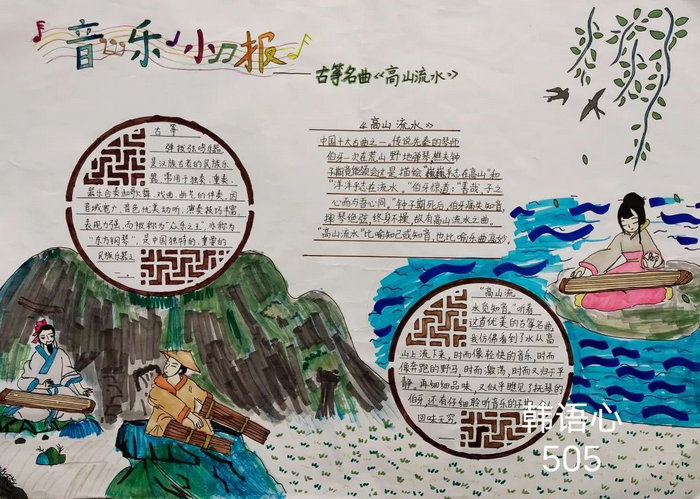 音乐小报
——古筝名曲《高山流水》
古筝
弹拨弦鸣乐器
是汉族古老的民族乐
器,常用于独奏、重奏、
器乐合奏和歌舞、戏曲、曲艺的伴奏,因
音域宽广,音色优美动听,演奏技巧丰富
表现力强,而被称为“众乐之王”,亦称为
“东方钢琴”,是中国独特的、重要的
民族乐器之
一。
《高山流水》
中国十大古曲之一。传说先秦的琴师
伯牙一次在荒山野地弹琴,樵夫钟
子期竟能领会这是描绘“巍巍乎志在高山”和
“洋洋乎志在流水。”伯牙惊道:“善哉,子之
心而与吾心同。”钟子期死后,伯牙痛失知音,
摔琴绝弦,终身不操,故有高山流水之曲。
“高山流水”比喻知己或知音,也比喻乐曲高妙。
“高山流
水觅知音,”听着
这首优美的古筝名曲
我仿佛看到了水从高
山上流下来,时而像轻快的音乐,时而
像奔跑的野马,时而激荡,时而又归于平
静。再细细品味,又似乎瞧见了抚琴的
伯牙,还有仔细聆听音乐的
回味无穷
韩语心
505